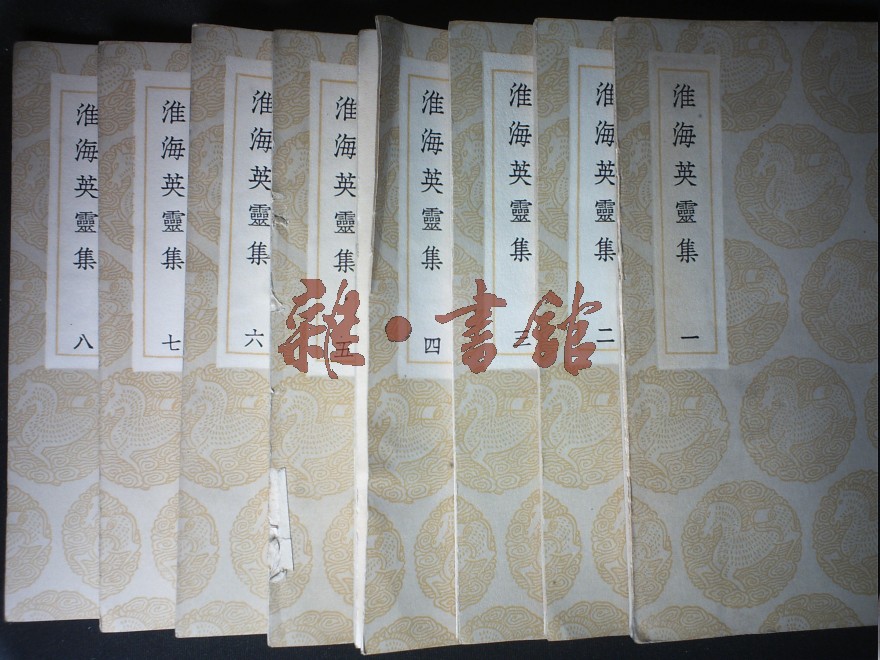 淮海英靈集 一
淮海英靈集 二
淮海英靈集 三
淮海英靈集 四
淮海英靈集 五
淮海英靈集 六
淮海英靈集 七
淮海英靈集 八
雜·書館